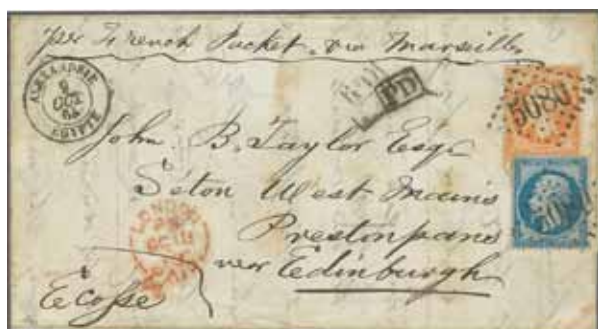 per French Packet. via Marseilles
ALEXANDRIE
9
OCT
64
EGYPTE
PD
5080
John B. Taylor Esqr
Seton West Mains
Prestonpans
near Edinburgh
Ecosse
LONDON
PAID
5080